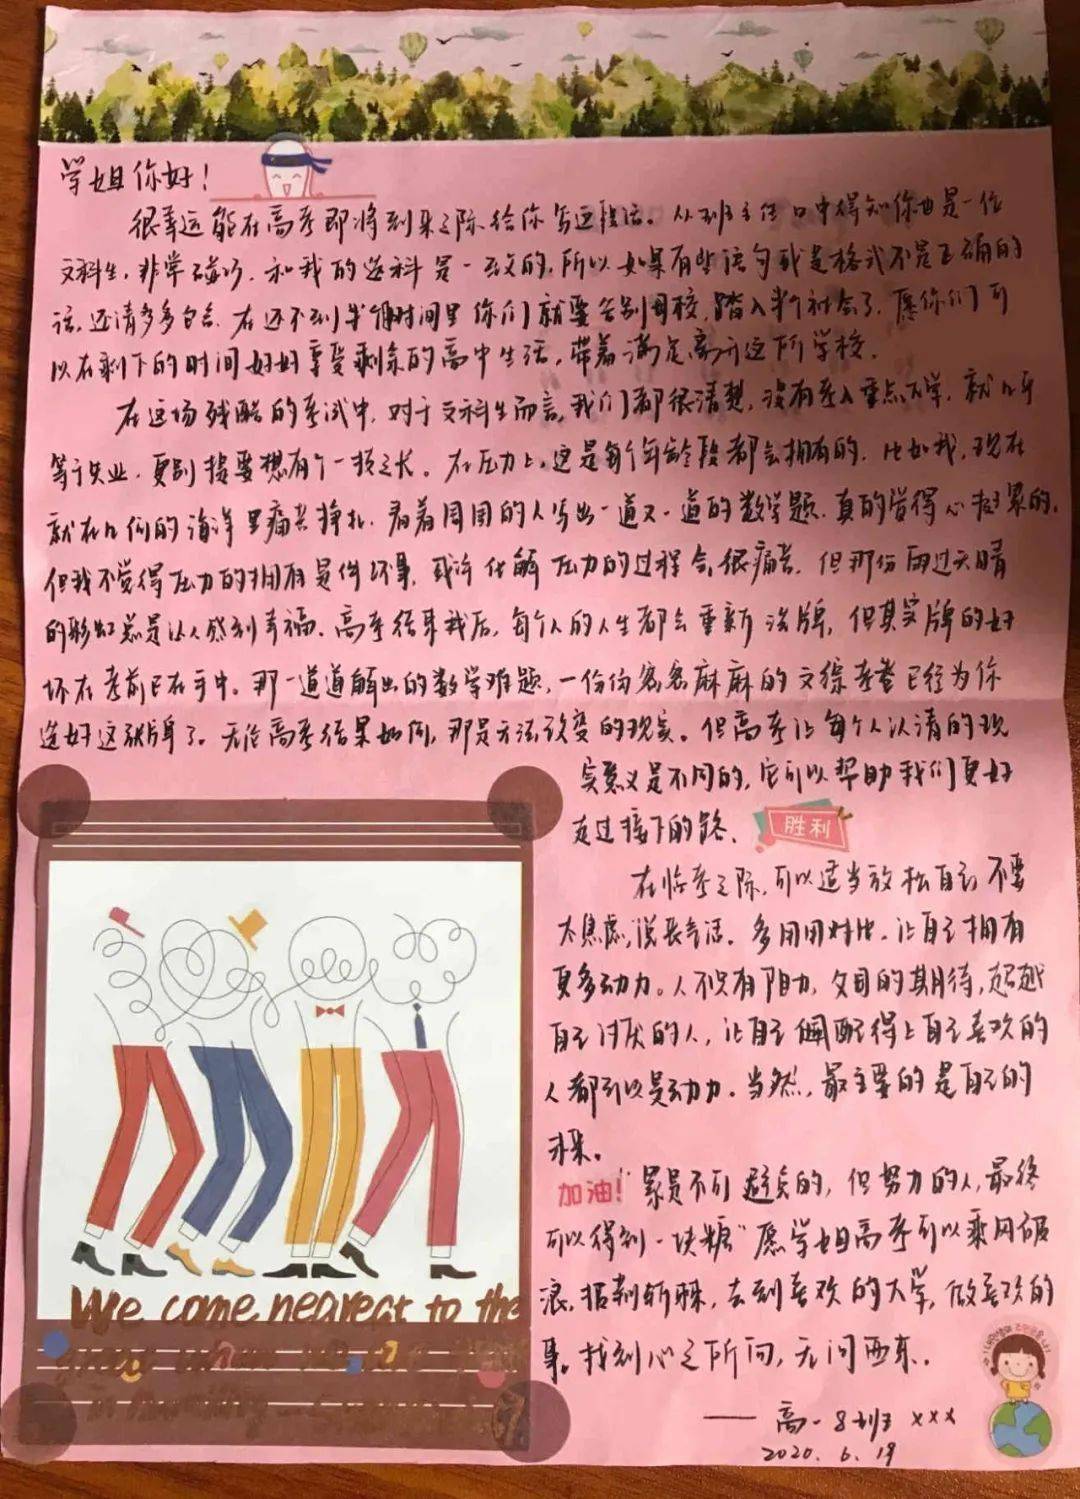 学姐你好！
很幸运能在高考即将到来之际给你写这段话。从班主任口中得知你也是一位
文科生，非常碰巧，和我的选科是一致的，所以如果有些语句或是格式不是正确的
话，还请多多包含。在还不到半个月时间里你们就要告别母校，踏入半个社会了，愿你们可
以在剩下的时间好好享受剩余的高中生活，带着满足离开这所学校。
在这场残酷的考试中，对于文科生而言，我们都很清楚，没有考入重点大学，就几乎
等于失业，更别提要想有个一技之长。在压力上，这是每个年龄段都会拥有的，比如我，现在
就在几何的海洋里痛苦挣扎，看着周围的人写出一道又一道的数学题，真的觉得心挺累的，
但我不觉得压力的拥有是件坏事，或许化解压力的过程会很痛苦，但那份雨过天晴
的彩虹总是让人感到幸福。高考结束我后，每个人的人生都会重新洗牌，但其实牌的好
坏在考前已在手中。那一道道解出的数学难题，一份份密密麻麻的文综考卷已经为你
选好这张牌了。无论高考结果如何，那是无法改变的现实。但高考让每个人认清的现
实意义是不同的，它可以帮助我们更好
走过接下的路。
胜利
在临考之际，可以适当放松自己，不要
太焦虑，说丧气话。多用用对比，让自己拥有
更多动力。人不只有阻力，父母的期待，超越
自己讨厌的人，让自己配得上自己喜欢的
人都可以是动力。当然，最主要的是自己的
未来。
加油！ 累是不可避免的，但努力的人，最终
可以得到一块糖”愿学姐高考可以乘风破
浪，披荆斩棘，去到喜欢的大学，做喜欢的
事。找到心之所向，无问西东。
—— 高一8班 xxx
2020. 6. 19
We come nearest to the
great when we are
in humility